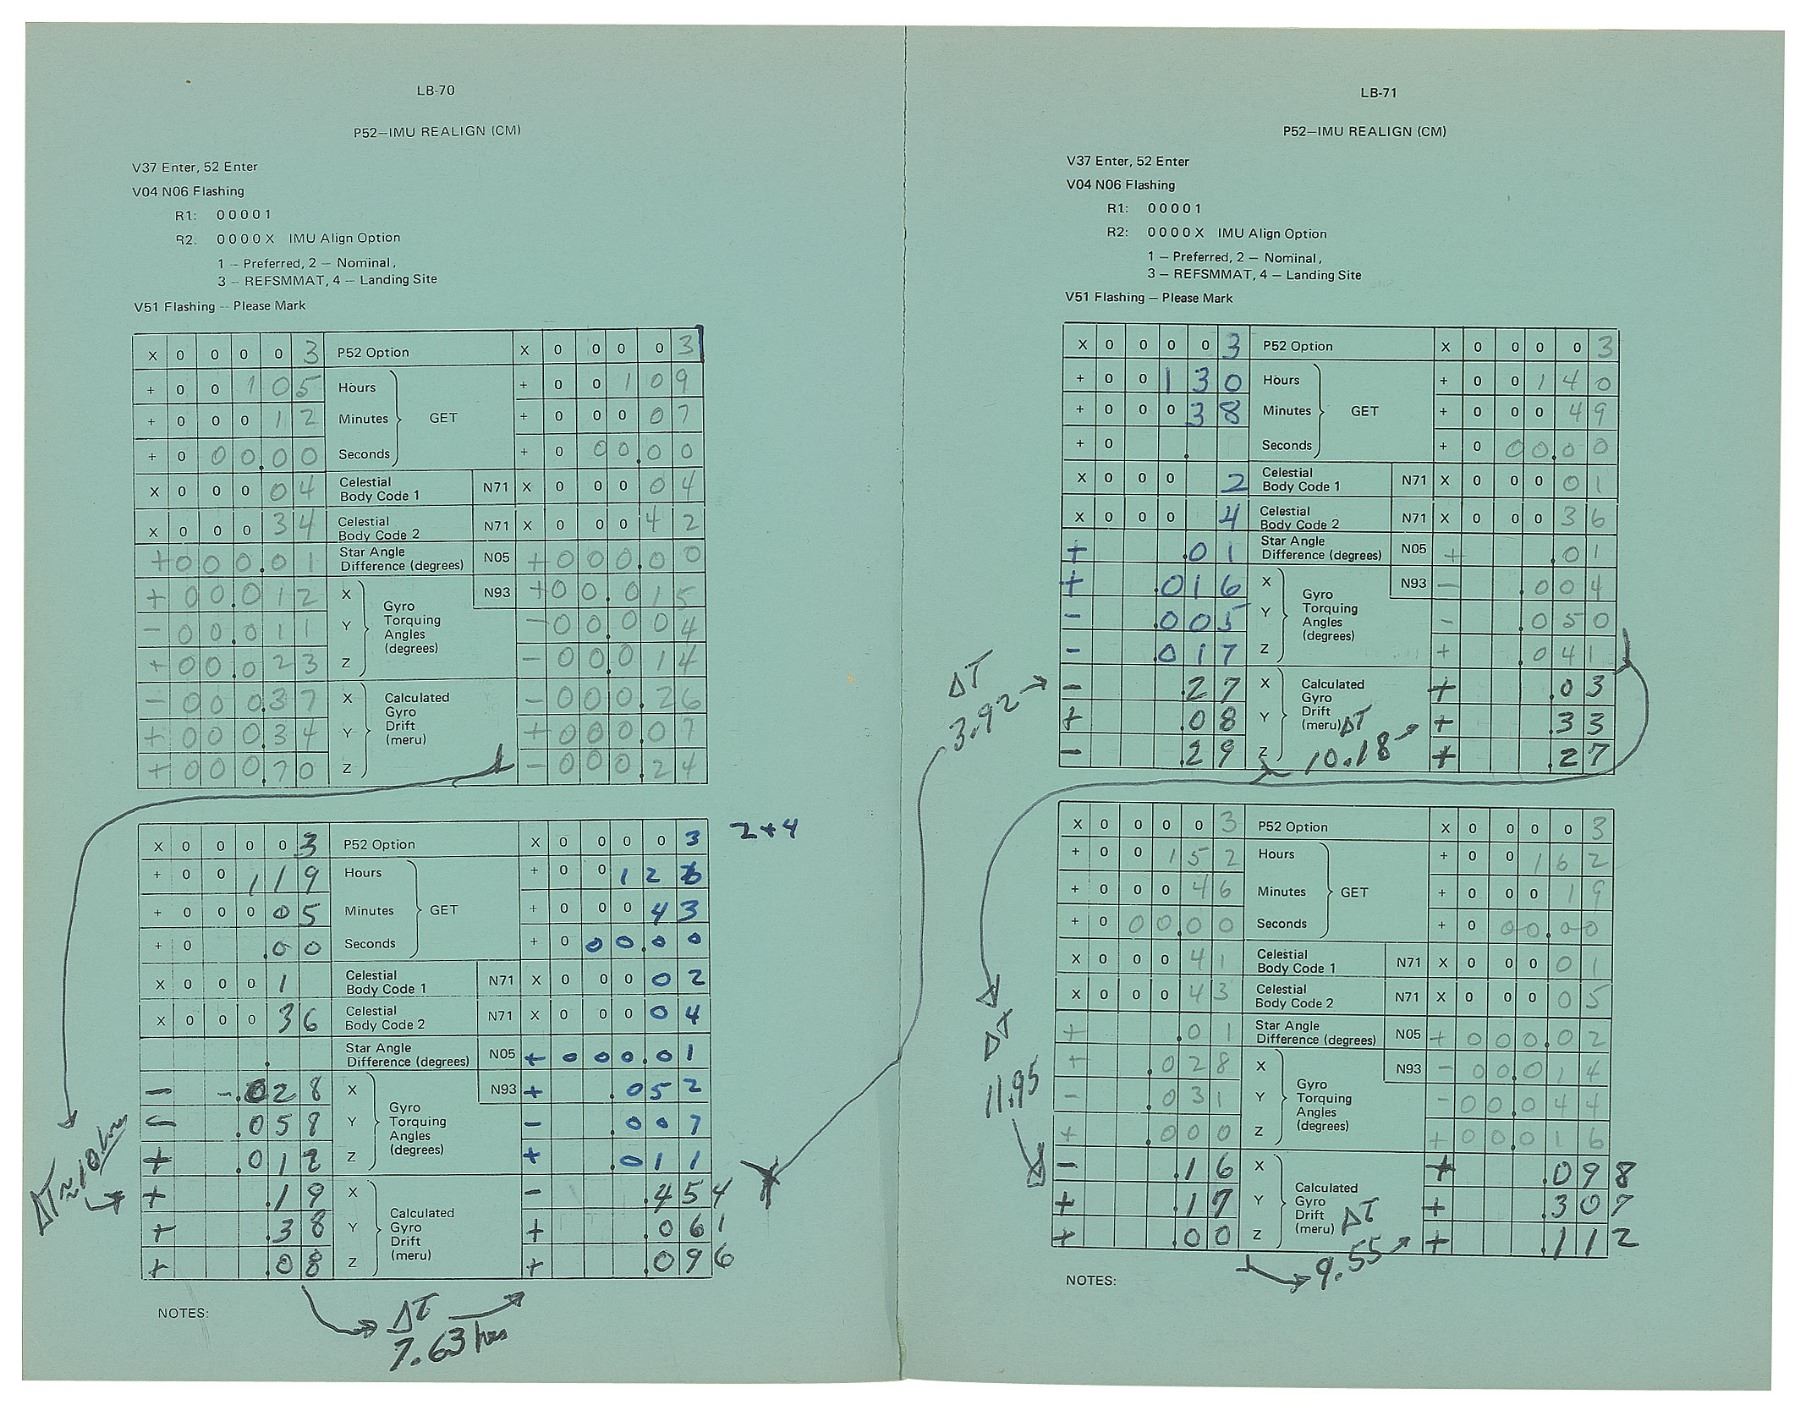 LB-70
P52–IMU REALIGN (CM)
V37 Enter, 52 Enter
V04 N06 Flashing
R1: 00001
R2. 0000X IMU Align Option
1 – Preferred, 2 – Nominal,
3 – REFSMMAT, 4 – Landing Site
V51 Flashing – Please Mark
X 0 0 0 0 3 P52 Option X 0 0 0 0 3
+ 0 0 1 0 5 Hours + 0 0 1 0 9
+ 0 0 0 1 2 Minutes GET + 0 0 0 0 7
+ 0 0 0.0 0 Seconds + 0 0 0.0 0
X 0 0 0 0 4 Celestial Body Code 1 N71 X 0 0 0 0 4
X 0 0 0 3 4 Celestial Body Code 2 N71 X 0 0 0 4 2
+ 0 0 0.0 1 Star Angle Difference (degrees) N05 + 0 0 0.0 0
+ 0 0.0 1 2 X Gyro Torquing Angles (degrees) N93 + 0 0.0 1 5
- 0 0.0 1 1 Y - 0 0.0 0 4
+ 0 0.0 2 3 Z - 0 0.0 1 4
- 0 0 0.3 7 X Calculated Gyro Drift (meru) - 0 0 0.2 6
+ 0 0 0.3 4 Y + 0 0 0.0 7
+ 0 0 0.7 0 Z - 0 0 0.2 4
X 0 0 0 0 3 P52 Option X 0 0 0 0 3 2+4
+ 0 0 1 1 9 Hours + 0 0 1 2 6
+ 0 0 0 0 5 Minutes GET + 0 0 0 4 3
+ 0 .0 0 Seconds + 0 0 0.0 0
X 0 0 0 1 Celestial Body Code 1 N71 X 0 0 0 0 2
X 0 0 0 3 6 Celestial Body Code 2 N71 X 0 0 0 0 4
. Star Angle Difference (degrees) N05 + 0 0 0.0 1
- -.0 2 8 X Gyro Torquing Angles (degrees) N93 + .0 5 2
- .0 5 8 Y - .0 0 7
+ .0 1 2 Z + .0 1 1
ΔT≈10 hrs
+ .1 9 X Calculated Gyro Drift (meru) - .4 5 4
+ .3 8 Y + .0 6 1
+ .0 8 Z + .0 9 6
NOTES:
ΔT
7.63 hrs
LB-71
P52–IMU REALIGN (CM)
V37 Enter, 52 Enter
V04 N06 Flashing
R1: 00001
R2: 0000X IMU Align Option
1 – Preferred, 2 – Nominal,
3 – REFSMMAT, 4 – Landing Site
V51 Flashing – Please Mark
X 0 0 0 0 3 P52 Option X 0 0 0 0 3
+ 0 0 1 3 0 Hours + 0 0 1 4 0
+ 0 0 0 3 8 Minutes GET + 0 0 0 4 9
+ 0 . Seconds + 0 0 0.0 0
X 0 0 0 2 Celestial Body Code 1 N71 X 0 0 0 0 1
X 0 0 0 4 Celestial Body Code 2 N71 X 0 0 0 3 6
+ .0 1 Star Angle Difference (degrees) N05 + .0 1
+ .0 1 6 X Gyro Torquing Angles (degrees) N93 - .0 0 4
- .0 0 5 Y - .0 5 0
- .0 1 7 Z + .0 4 1
ΔT
3.92
- .2 7 X Calculated Gyro Drift (meru) + .0 3
+ .0 8 Y ΔT + .3 3
- .2 9 Z 10.18 + .2 7
X 0 0 0 0 3 P52 Option X 0 0 0 0 3
+ 0 0 1 5 2 Hours + 0 0 1 6 2
+ 0 0 0 4 6 Minutes GET + 0 0 0 1 9
+ 0 0 0.0 0 Seconds + 0 0 0.0 0
X 0 0 0 4 1 Celestial Body Code 1 N71 X 0 0 0 0 1
X 0 0 0 4 3 Celestial Body Code 2 N71 X 0 0 0 0 5
+ .0 1 Star Angle Difference (degrees) N05 + 0 0 0.0 2
+ .0 2 8 X Gyro Torquing Angles (degrees) N93 - 0 0.0 1 4
- .0 3 1 Y - 0 0.0 4 4
+ .0 0 0 Z + 0 0.0 1 6
ΔT
11.95
- .1 6 X Calculated Gyro Drift (meru) + .0 9 8
+ .1 7 Y ΔT + .3 0 7
+ .0 0 Z 9.55 + .1 1 2
NOTES: